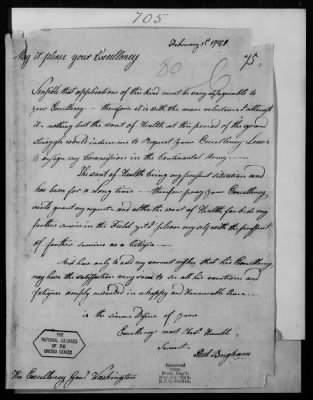 705
February 1st 1781
May it please your Excellency
75
80
Sensible that applications of this kind must be very disagreeable to
your Excellency — therefore it is with the more reluctance I attempt
it — nothing but the want of Health at this period of the grand
struggle could induce me to Request your Excellency Leave
to resign my Commission in the Continental Army —
The want of Health being my present situation and
has been for a long time — therefore pray your Excellency
will grant my request — and altho the want of Health forbids my
further service in the Field yet I please my self with the prospect
of further services as a Citizen —
And have only to add my warmest wishes that his Excellency
may have the satisfaction very soon to see all his exertions and
fatigues amply rewarded in a happy and Honourable Peace —
is the sincere Desire of your
Excellency most Obed Humble
Servant
Brigham
His Excellency Genl Washington
THE
NATIONAL ARCHIVES
OF THE
UNITED STATES
Received
from